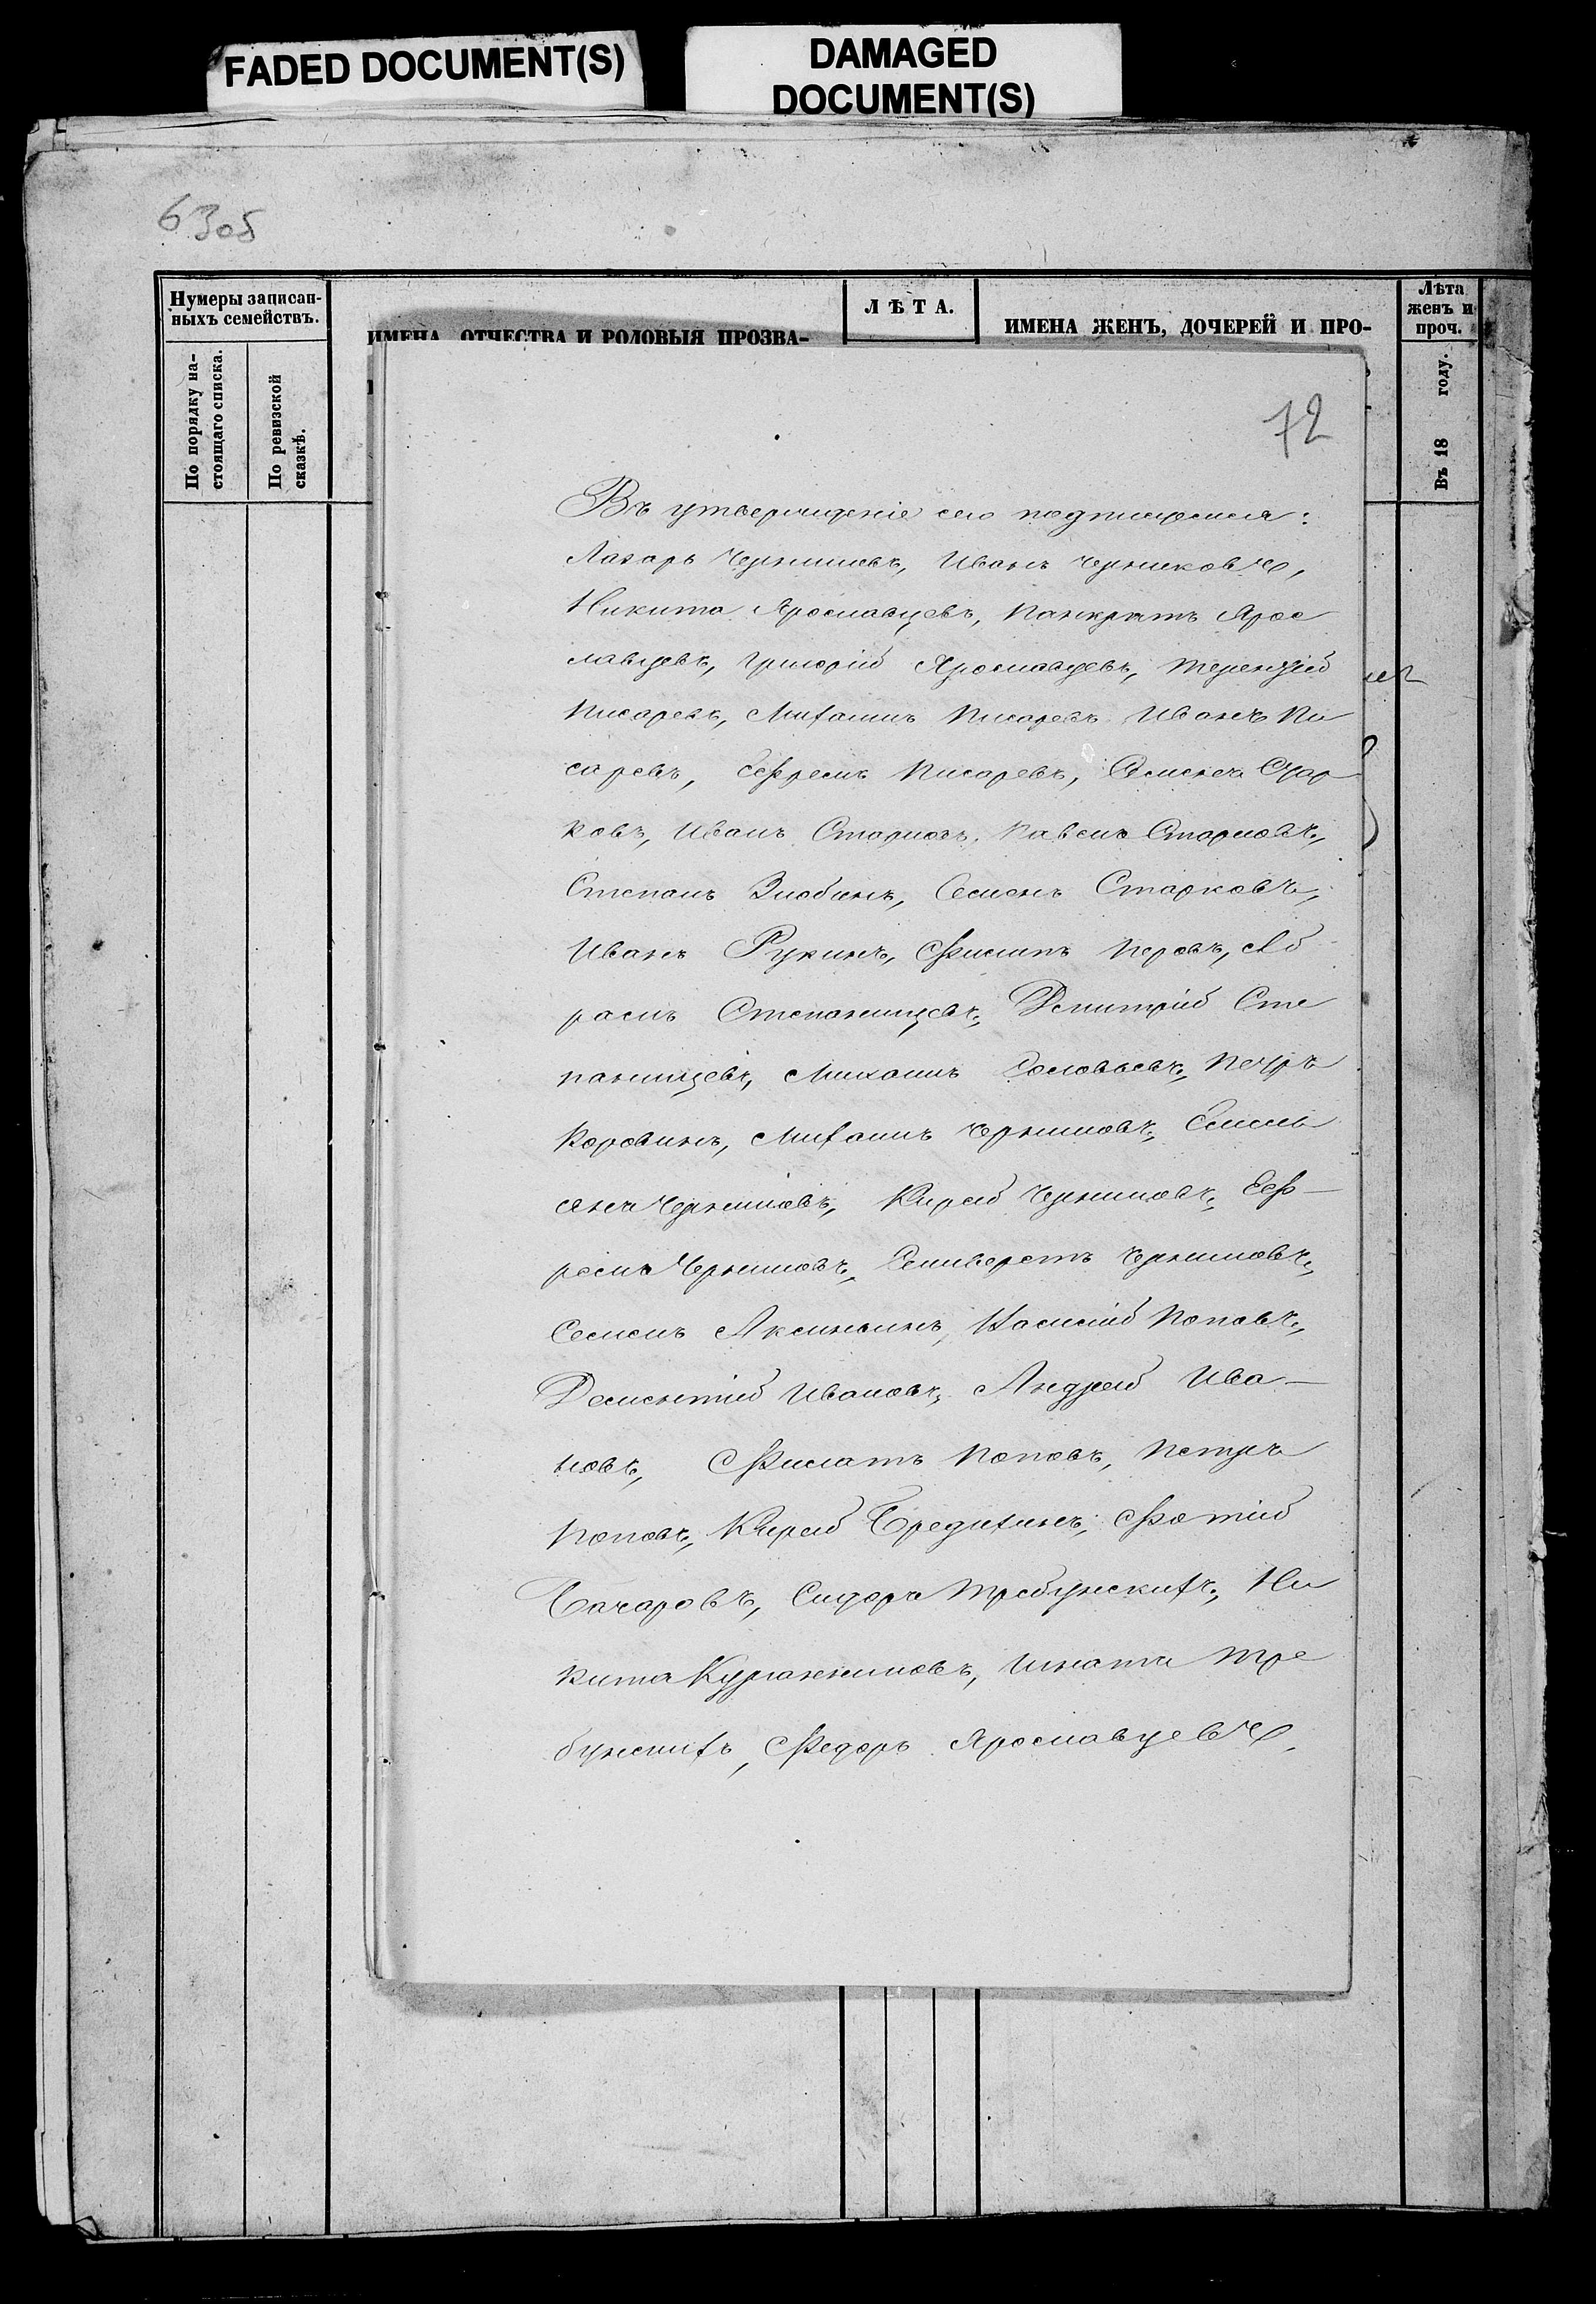 FADED DOCUMENT(S)
DAMAGED
DOCUMENT(S)
63об
Нумеры записан-
ныхъ семействъ.
По порядку на-
стоящаго списка.
По ревизской
сказкѣ.
ИМЕНА ОТЧЕСТВА И РОДОВЫЯ ПРОЗВА-
ЛѢТА.
ИМЕНА ЖЕНЪ, ДОЧЕРЕЙ И ПРО-
Лѣта
женъ и
проч.
Въ 18 году.
72
Въ утвержденіе сего подпишемся:
Лазарь Черниковъ, Иванъ Черниковъ,
Никита Ярославцевъ, Панкратъ Ярос
лавцевъ, Григорій Ярославцевъ, Терентій
Писаревъ, Михаилъ Писаревъ Иванъ Пи
саревъ, Ефремъ Писаревъ, Семенъ Стар-
ковъ, Иванъ Старковъ, Павелъ Старковъ,
Степанъ Злобинъ, Семенъ Старковъ,
Иванъ Рукинъ, Филипъ Перовъ, Аб
рамъ Степанищевъ, Дмитрій Сте
панищевъ, Михаилъ Соловьевъ, Петръ
Коровинъ, Михаилъ Черниковъ, Емель
янъ Черниковъ, Кирей Черниковъ, Еф-
ремъ Черниковъ, Селиверстъ Черниковъ,
Семенъ Аксиньинъ, Василій Поповъ,
Дементій Ивановъ, Андрей Ива-
новъ, Филатъ Поповъ, Петръ
Поповъ, Кирей Бредихинъ, Фотій
Бачаровъ, Сидоръ Требунскихъ, Ни
кита Игнатъ Тре
бунскихъ, Федоръ Ярославцевъ,